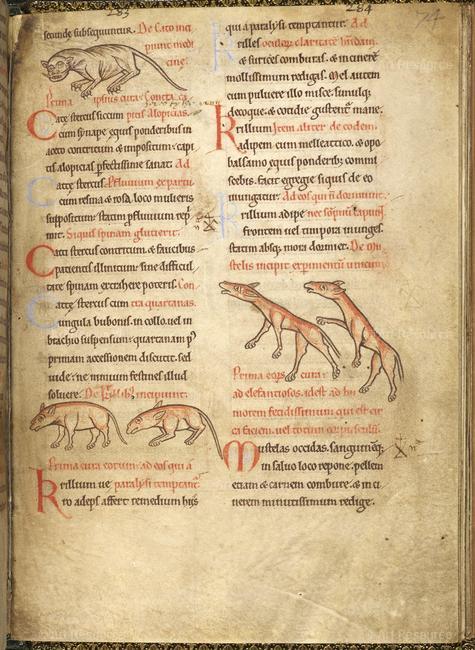 283
secunde subsequentur. De Cato inci
piunt medi
cine.
Prima ipsius cura
Catte stercus siccum prius Alopicias.
cum synape equis ponderibus in
aceto contritum & impositum: capi
tis alopicias perfectissime sanat. Ad
Catte stercus. Profluvium ex partu
cum resina & rosa. loco mulieris
suppositum: statim profluvium rep
mit. Siquis spinam glutierit.
Catti stercus contritum. & faucibus
patientis illinitum: sine difficul
tate spinam extrahere poteris. Con
Catte stercus cum tra quartanas.
ungula bubonis in collo. vel in
brachio suspensum: quartanam p
primam accessionem discutit. sed
vide: ne nimium festines illud
solvere. De incipiunt.
Prima cura eorum: ad eos qui a
Krillium ue paralysi temptantur.
ro adeps affert remedium hiis
284
74
qui a paralysi temptantur. Ad
rilles oculorum claritate habendam.
& surices comburas. & in cinerem
mollissimum redigas. Mel autem
cum pulvere illo misce. simulque
decoque. & cotidie gustent mane.
Krillium Item aliter de eodem.
adipem cum melle attico. & opo
balsamo equis ponderibus commi
scebis. facit egregie siquis de eo
inungatur. Ad eos qui non dormiunt.
Krillium adipe nec sopnum capiunt.
frontem vel timpora inunges.
statim absque mora dormiet. De mu
stelis incipit experimentum
Prima cura
ad elefantiosos. id est ad hu
morem fedissimum qui est cir
ca faciem. vel totum corpusculum.
Mustelas occidas. sanguinemque
in salvo loco repone. pellem
etiam & carnem combure. & in ci
nerem minutissimum redige.